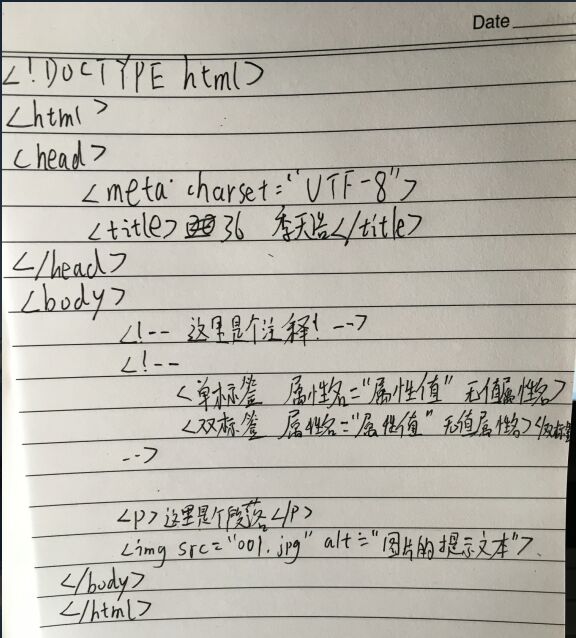 Date
<!DOCTYPE html>
<html>
<head>
<meta charset="UTF-8">
<title> 36 季天浩</title>
</head>
<body>
<!-- 这里是个注释! -->
<!--
<单标签 属性名="属性值" 无值属性名>
<双标签 属性名="属性值" 无值属性名></双标签
-->
<p>这里是个段落</p>
<img src="001.jpg" alt="图片的提示文本">
</body>
</html>